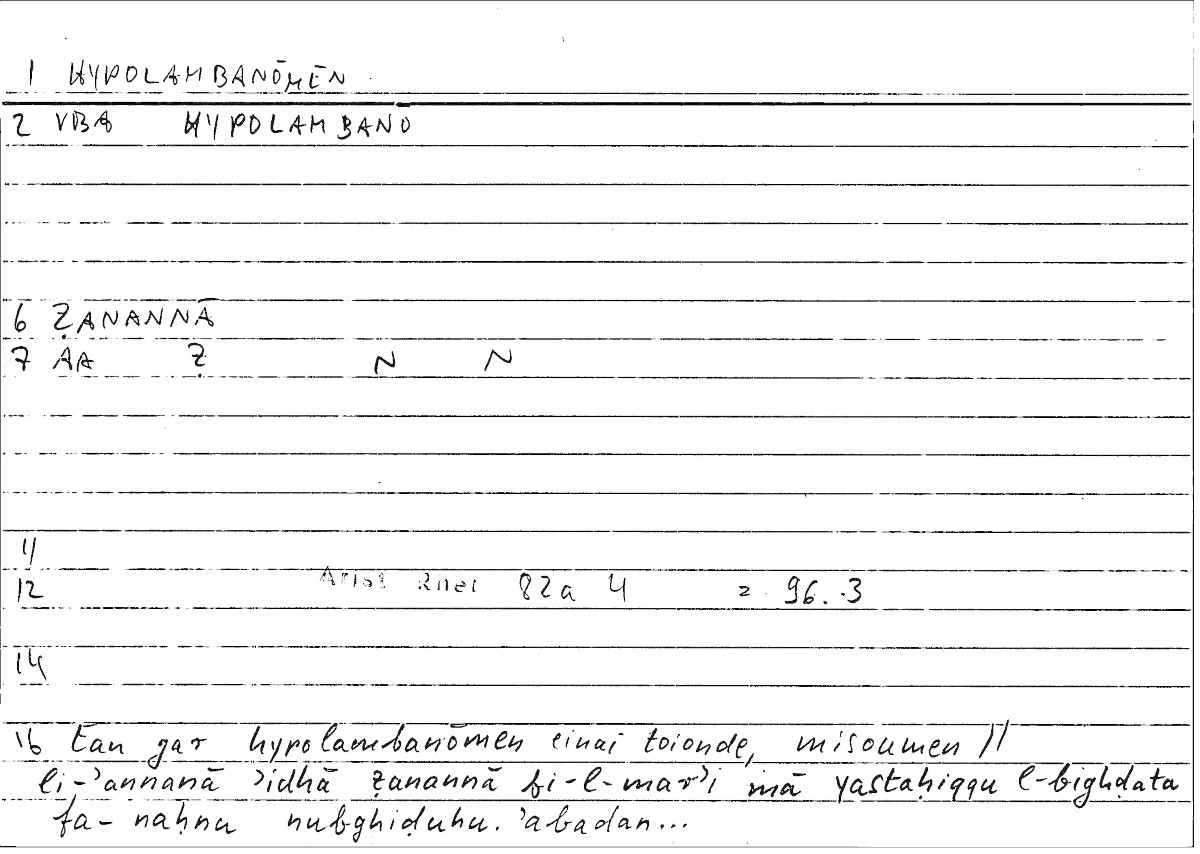 1 HYPOLAMBANŌMĒN
2 VBA HYPOLAMBANO
6 ẒANANNĀ
7 AA Ẓ N N
11
12 Arist Rhet 82a 4 = 96.3
14
16 Ean gar hypolambanōmen einai toionde, misoumen //
li-'annanā 'idhā ẓanannā fi-l-mar'i mā yastaḥiqqu l-bighḍata
fa-naḥnu nubghiḍuhu. 'abadan...